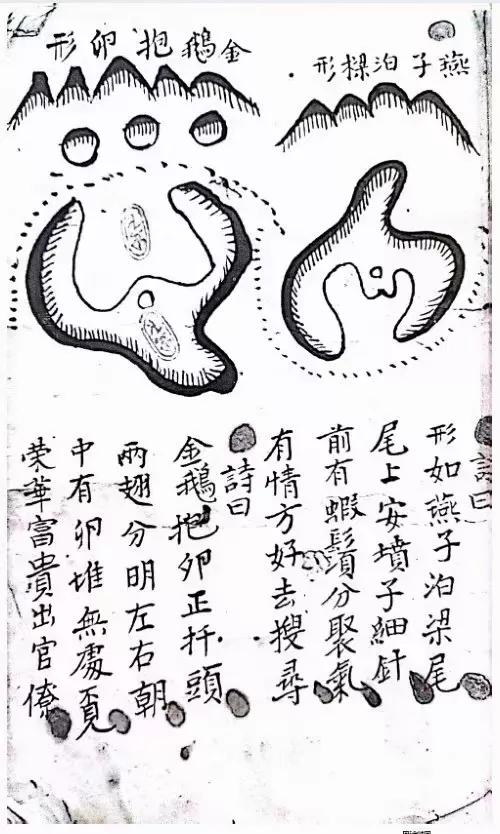 燕子泊樑形
詩曰
形如燕子泊梁尾
尾上安墳子細針
前有蝦鬚分聚氣
有情方好去搜尋
金鵝抱卵形
詩曰
金鵝抱卵正扦頭
兩翅分明左右朝
中有卵堆無處覓
榮華富貴出官僚